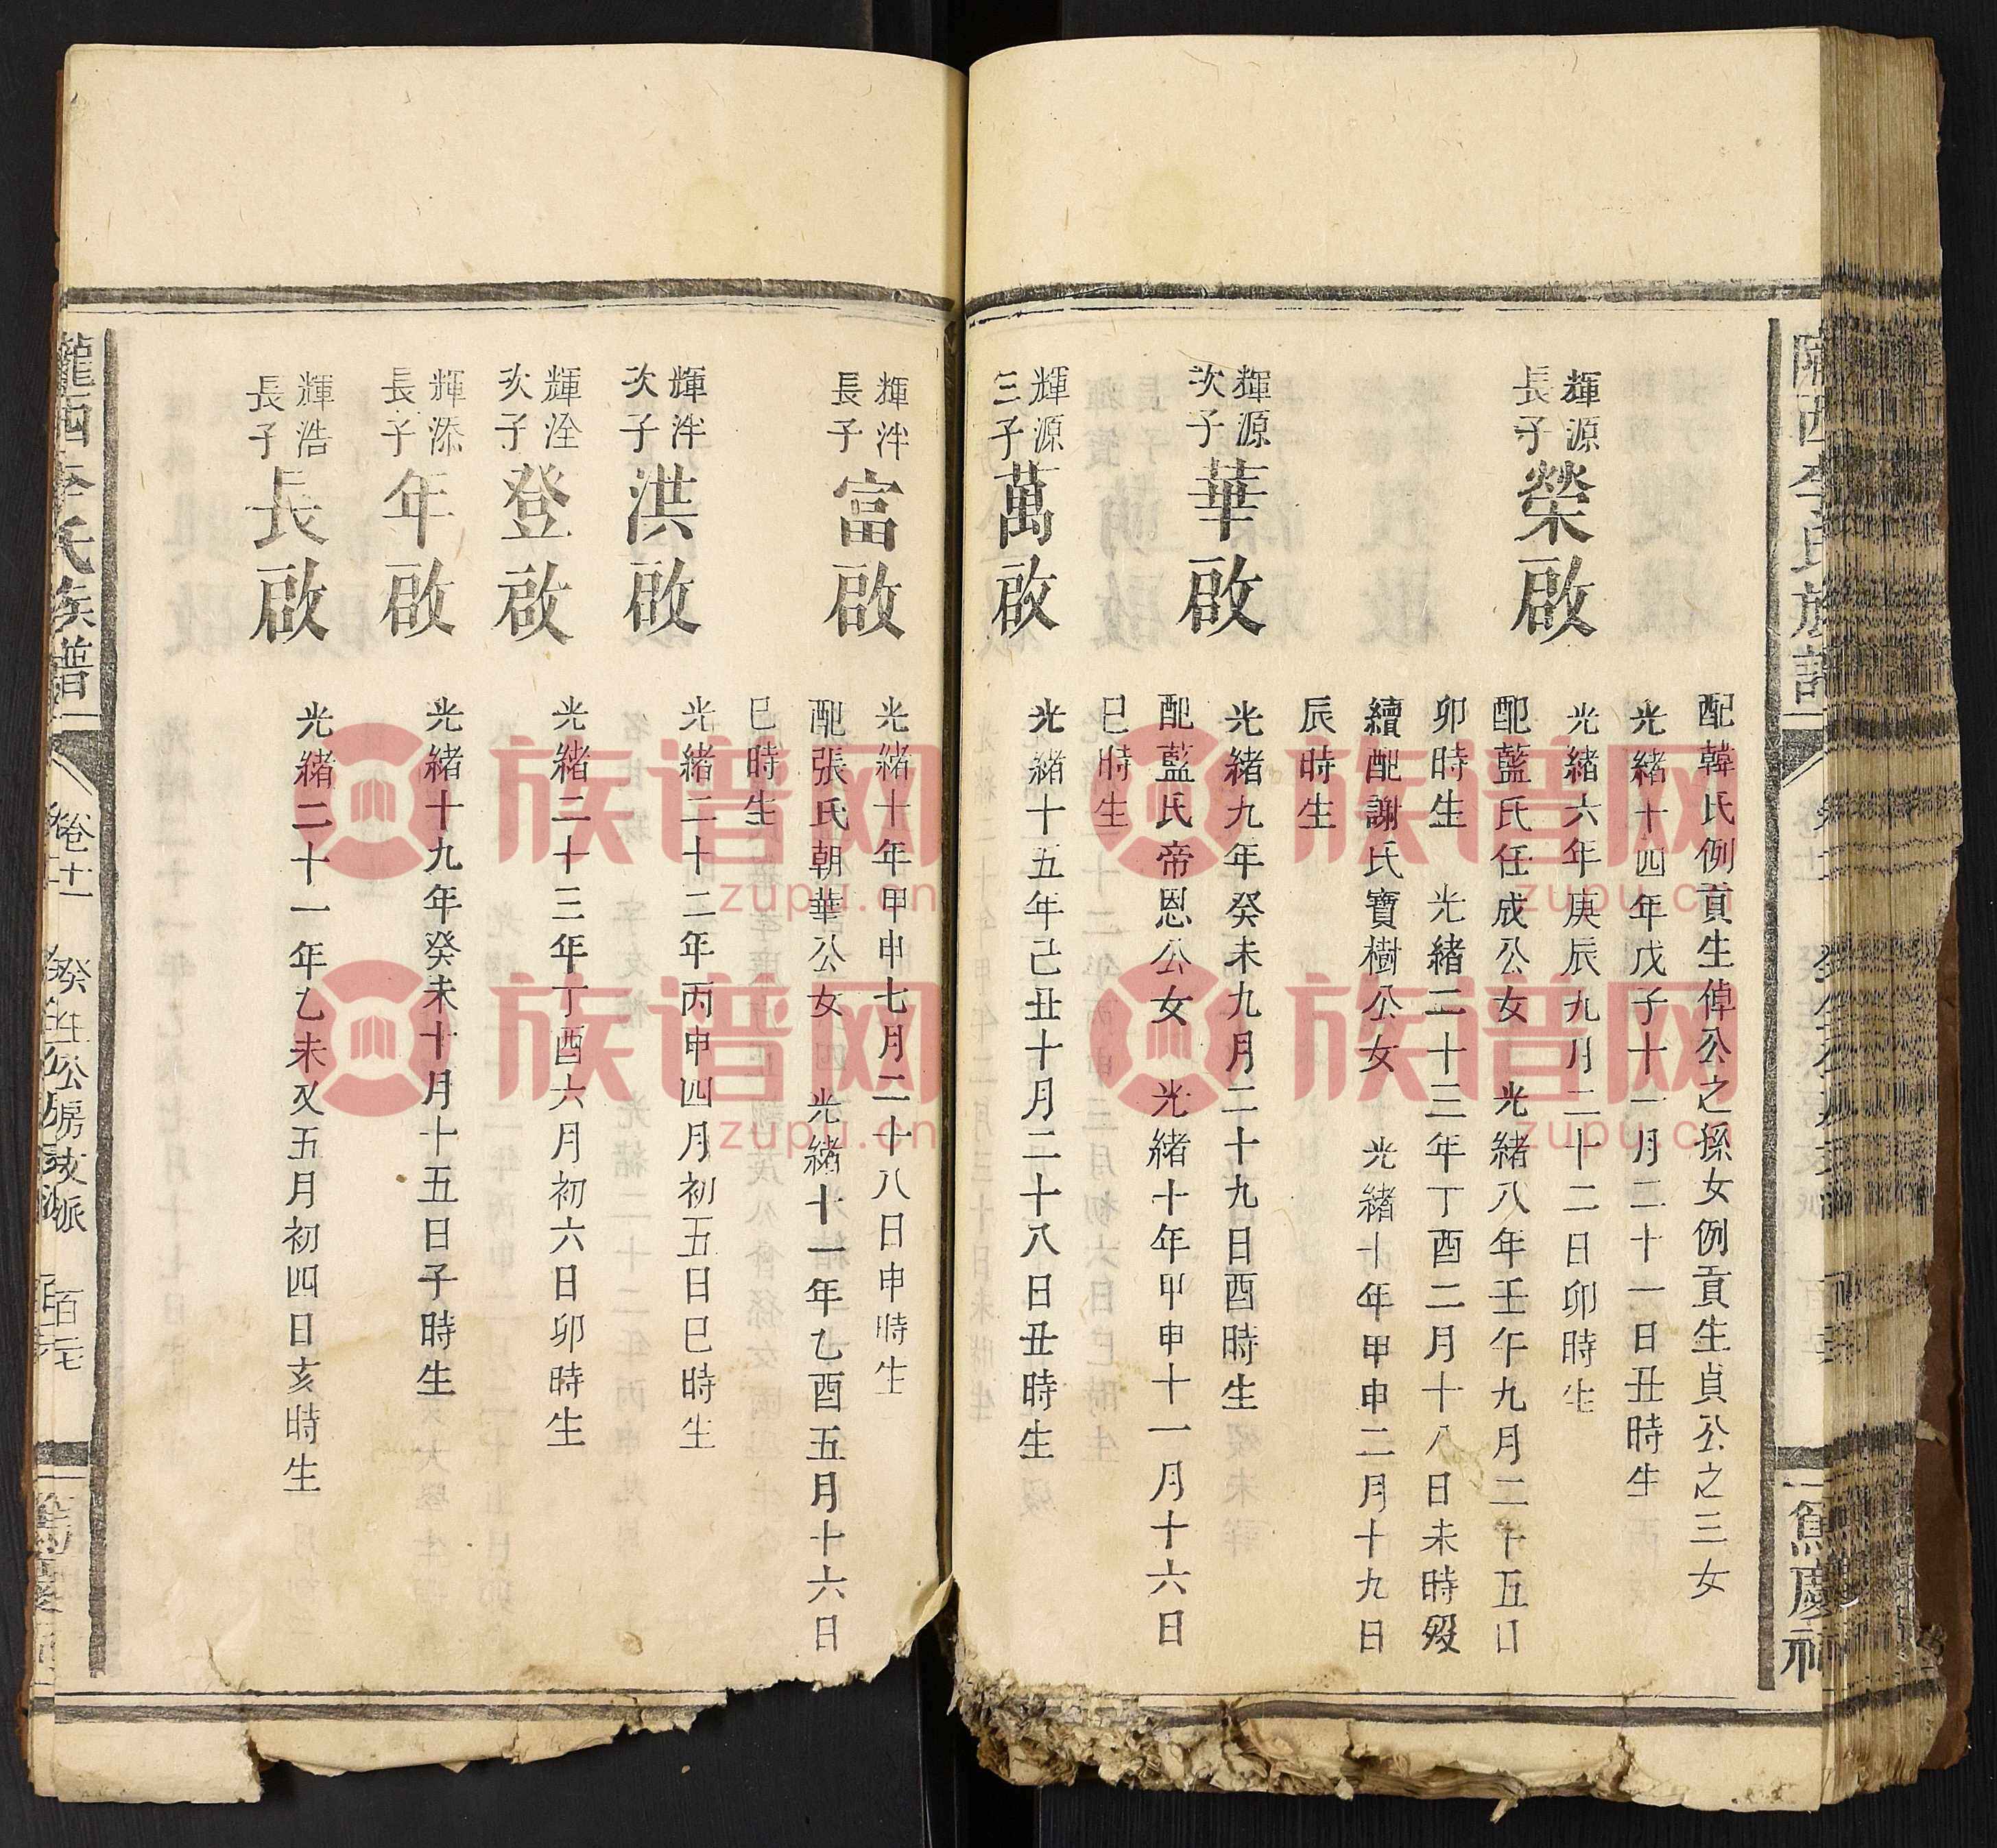 配韓氏例貢生倬公之孫女例貢生貞公之三女
光緒十四年戊子十一月二十一日丑時生
輝源
長子
榮啟
光緒六年庚辰九月二十二日卯時生
配藍氏任成公女 光緒八年壬午九月二十五日
卯時生 光緒二十三年丁酉二月十八日未時歿
續配謝氏寶樹公女 光緒十年甲申二月十九日
辰時生
輝源
次子
華啟
光緒九年癸未九月二十九日酉時生
配藍氏帝恩公女 光緒十年甲申十一月十六日
巳時生
輝源
三子
萬啟
光緒十五年己丑十月二十八日丑時生
輝泮
長子
富啟
光緒十年甲申七月二十八日申時生
配張氏朝華公女 光緒十一年乙酉五月十六日
巳時生
輝泮
次子
洪啟
光緒二十二年丙申四月初五日巳時生
輝洤
次子
登啟
光緒二十三年丁酉六月初六日卯時生
輝添
長子
年啟
光緒十九年癸未十月十五日子時生
輝浩
長子
長啟
光緒二十一年乙未又五月初四日亥時生
隴西李氏族譜
卷十二
癸生公房支派
族谱网
zupu.cn
族谱网
zupu.cn
族谱网
zupu.cn
族谱网
zupu.cn